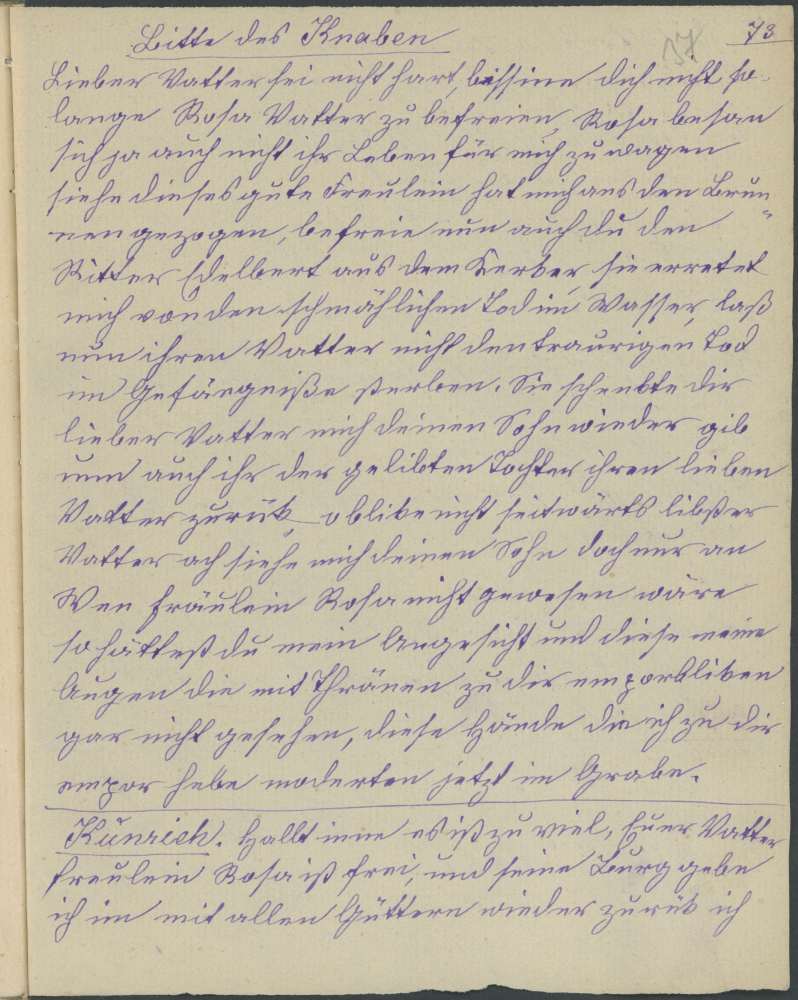 Bitte des Knaben
37
73
Lieber Vatter sei nicht hart, bessine dich nicht so
lange Rosa Vatter zu befreien, Rosa besan
sich ja auch nicht ihr Leben für mich zu wagen
siehe dieses gute Freulein hat mich aus den Brun„
nen gezogen, befreie nun auch du den
Ritter Edelbert aus dem Kerker, sie erretet
mich von den schmählichen Tod im Wasser, laß
nun ihren Vatter nicht den traurigen Tod
im Gefängniße sterben. Sie schenkte dir
lieber Vatter mich deinen Sohn wieder gib
nun auch ihr der gelibten Tochter ihren lieben
Vatter zurük, o blike nicht seitwärts libster
Vatter ach siehe mich deinen Sohn doch nur an
Wen Fräulein Rosa nicht gewesen wäre
so hättest du mein Angesicht und diese meine
Augen die mit Thränen zu dir emporbliken
gar nicht gesehen, diese Hände die ich zu dir
empor hebe moderten jetzt im Grabe.
Kunrich. Hallt inne es ist zu viel, Euer Vatter
Freulein Rosa ist frei, und seine Burg gebe
ich im mit allen Güttern wieder zurük ich